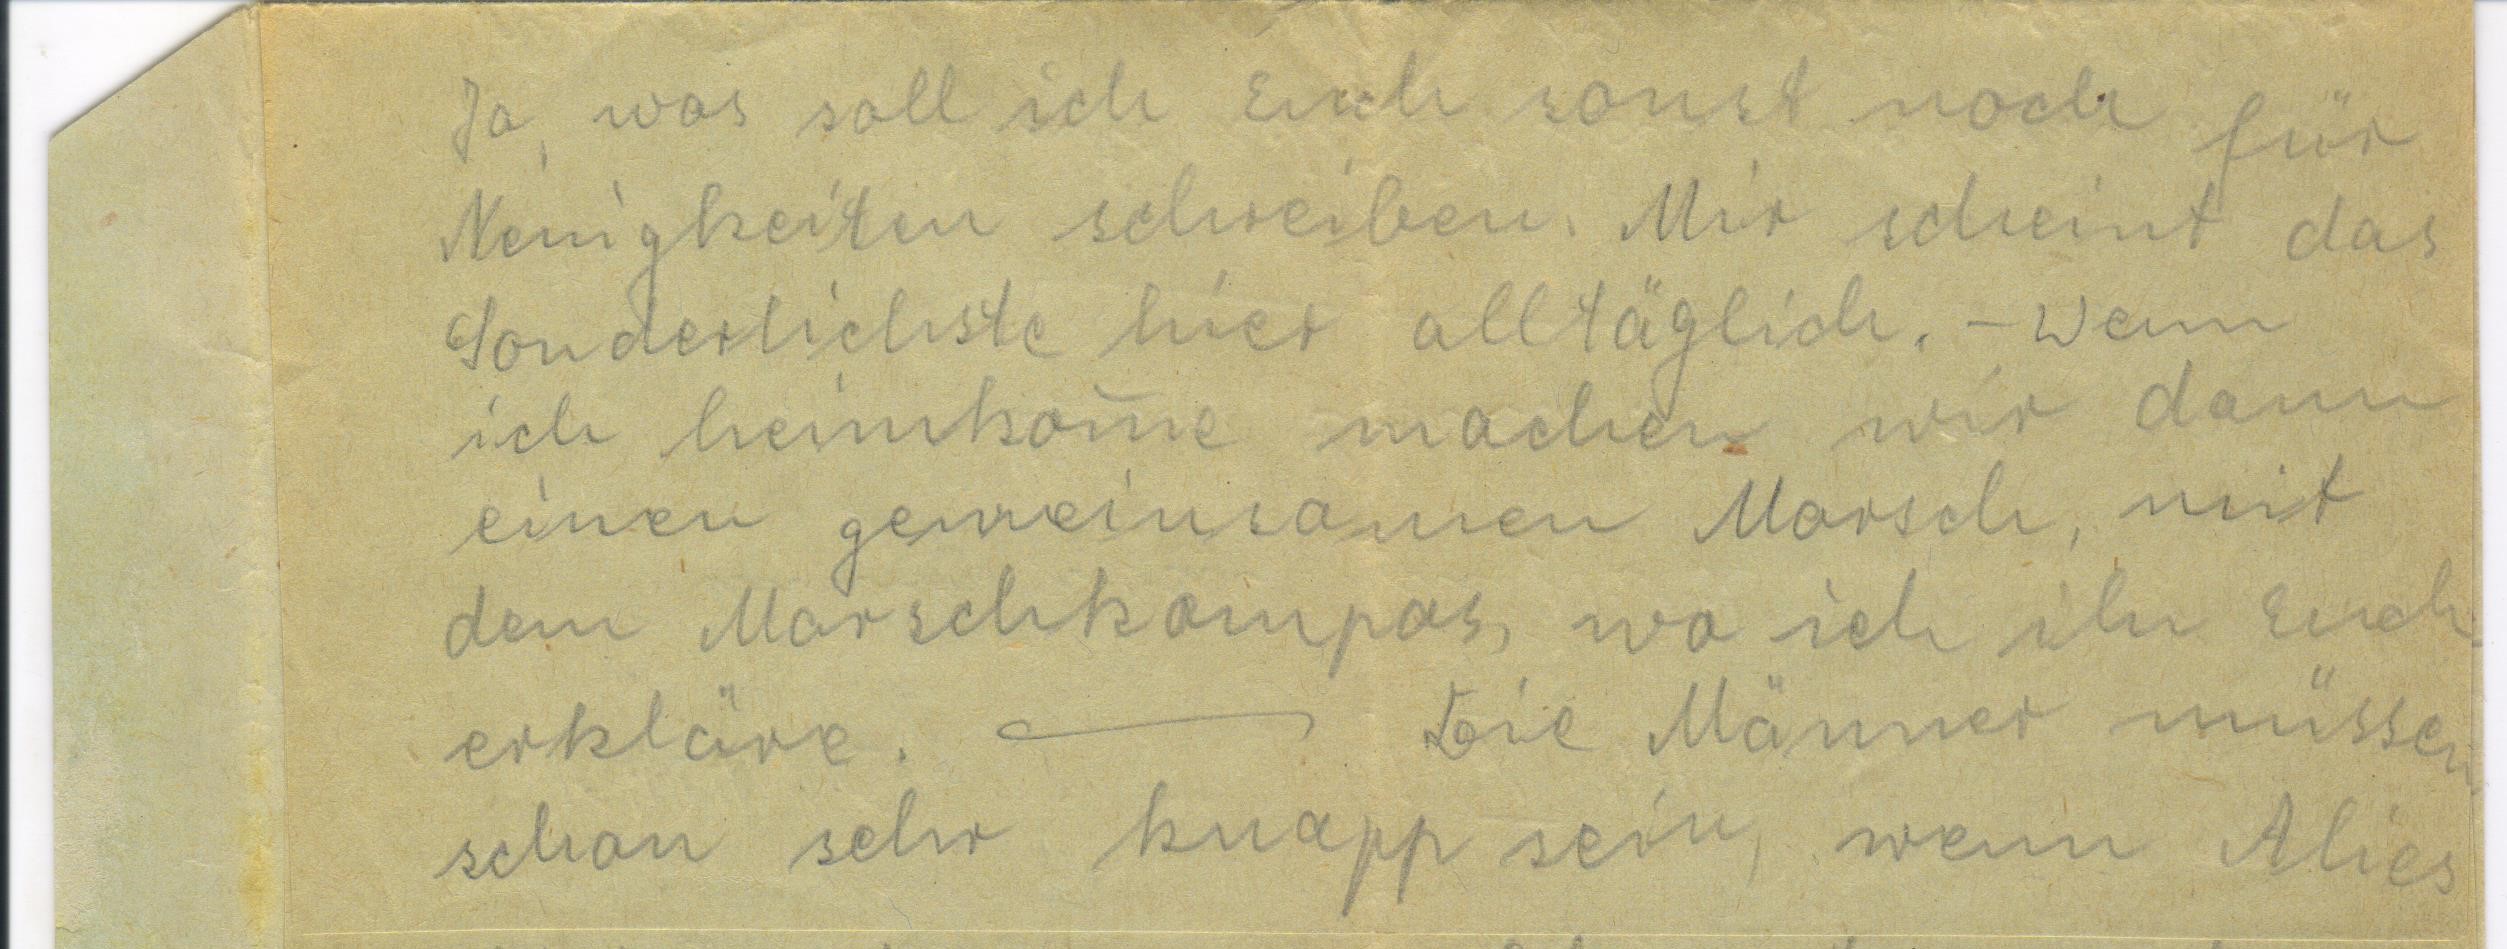 Ja, was soll ich Euch sonst noch für
Neuigkeiten schreiben. Mir scheint das
Sonderlichste hier alltäglich. – Wenn
ich heimkom̅e machen wir dann
einen gemeinsamen Marsch, mit
dem Marschkompas, wo ich ihn Euch
erkläre. — Die Männer müssen
schon sehr knapp sein, wenn Alies